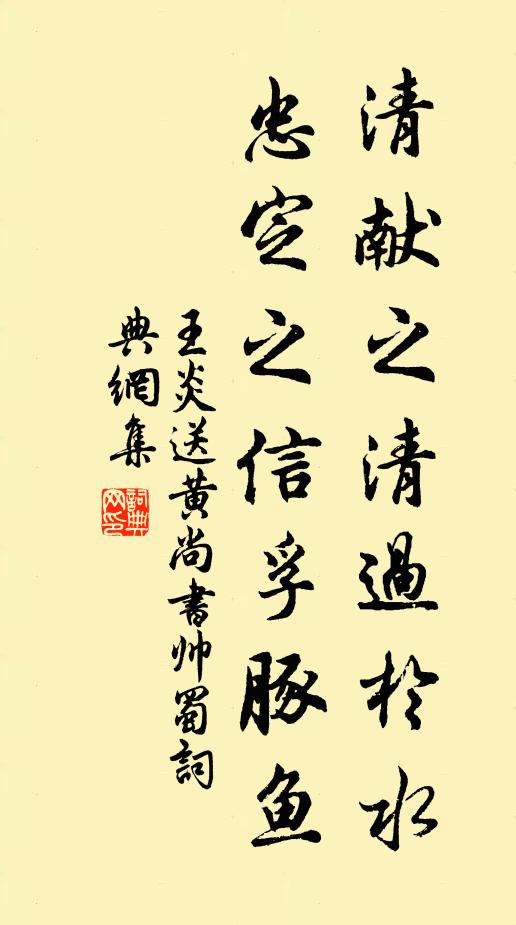 清献之清過於水
忠定之信孚豚魚
王炎送黄尚書帅蜀詞
典網集
詞典网印